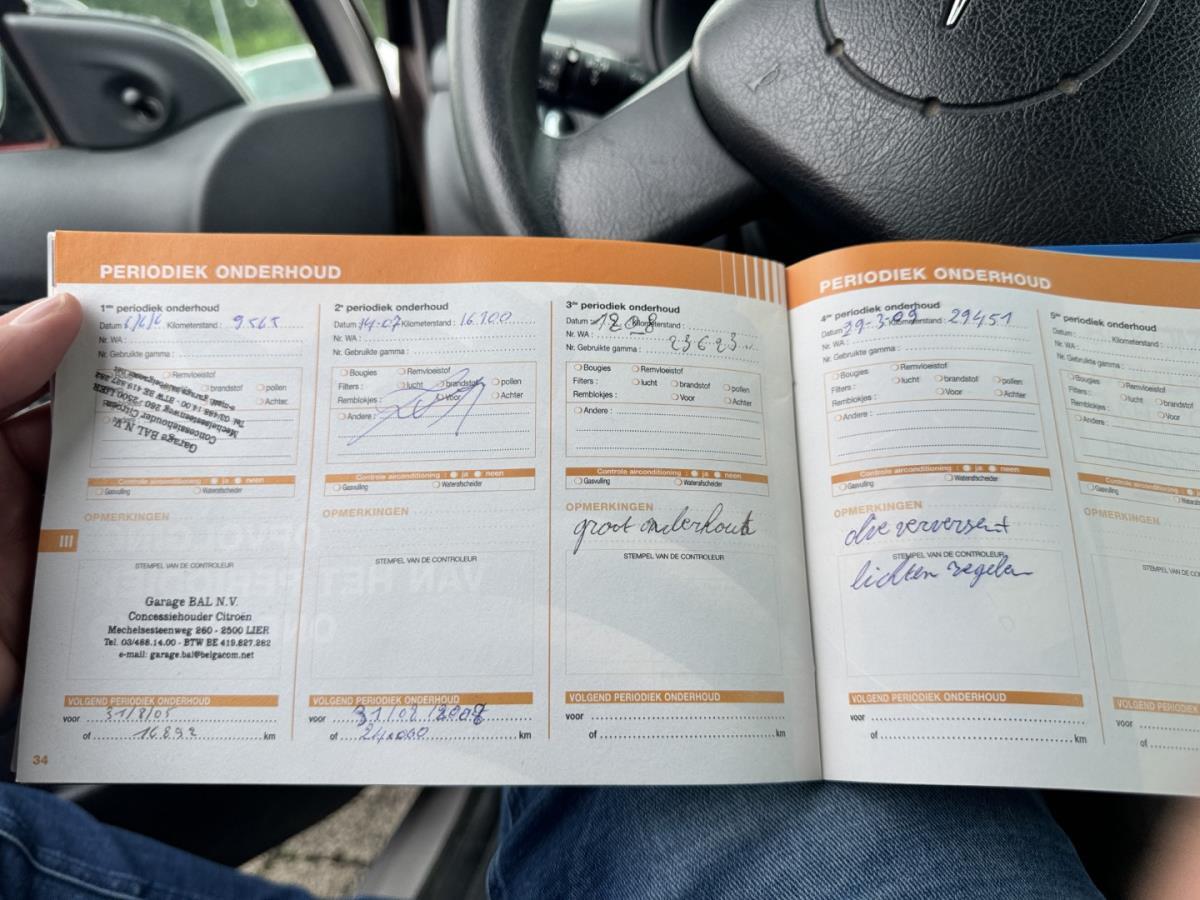 PERIODIEK ONDERHOUD
1ste periodiek onderhoud
Datum 6/6/6 Kilometerstand : 9565
Nr. WA :
Nr. Gebruikte gamma :
Remvloeistof
brandstof pollen
Achter
Garage BAL N.V.
Concessiehouder Citroën
Mechelsesteenweg 260 - 2500 LIER
Controle airconditioning : ja neen
Gasvulling Waterafscheider
OPMERKINGEN
STEMPEL VAN DE CONTROLEUR
Garage BAL N.V.
Concessiehouder Citroën
Mechelsesteenweg 260 - 2500 LIER
Tel. 03/488.14.00 - BTW BE 419.827.282
e-mail: garage.bal@belgacom.net
VOLGEND PERIODIEK ONDERHOUD
voor 31/8/05
of 16892 km
34
III
2e periodiek onderhoud
Datum : 14-07 Kilometerstand : 16.100
Nr. WA :
Nr. Gebruikte gamma :
Bougies Remvloeistof
Filters : lucht brandstof pollen
Remblokjes : Voor Achter
Andere :
Controle airconditioning : ja neen
Gasvulling Waterafscheider
OPMERKINGEN
STEMPEL VAN DE CONTROLEUR
VOLGEND PERIODIEK ONDERHOUD
voor 31/08/2008
of 24.000 km
3de periodiek onderhoud
Datum : Kilometerstand :
Nr. WA : 23623
Nr. Gebruikte gamma :
Bougies Remvloeistof
Filters : lucht brandstof pollen
Remblokjes : Voor Achter
Andere :
Controle airconditioning : ja neen
Gasvulling Waterafscheider
OPMERKINGEN
groot onderhoud
STEMPEL VAN DE CONTROLEUR
VOLGEND PERIODIEK ONDERHOUD
voor
of km
PERIODIEK ONDERHOUD
4de periodiek onderhoud
Datum 29-3-09 Kilometerstand : 29451
Nr. WA :
Nr. Gebruikte gamma :
Bougies Remvloeistof
Filters : lucht brandstof pollen
Remblokjes : Voor Achter
Andere :
Controle airconditioning : ja neen
Gasvulling Waterafscheider
OPMERKINGEN
olie ververst
STEMPEL VAN DE CONTROLEUR
lichten regelen
VOLGEND PERIODIEK ONDERHOUD
voor
of km
5de periodiek onderhoud
Datum : Kilometerstand :
Nr. WA :
Nr. Gebruikte gamma :
Bougies Remvloeistof
Filters : lucht brandstof
Remblokjes : Voor
Andere :
Controle airconditioning :
Gasvulling
OPMERKINGEN
STEMPEL VAN DE
VOLGEND PERIODIEK
voor
of